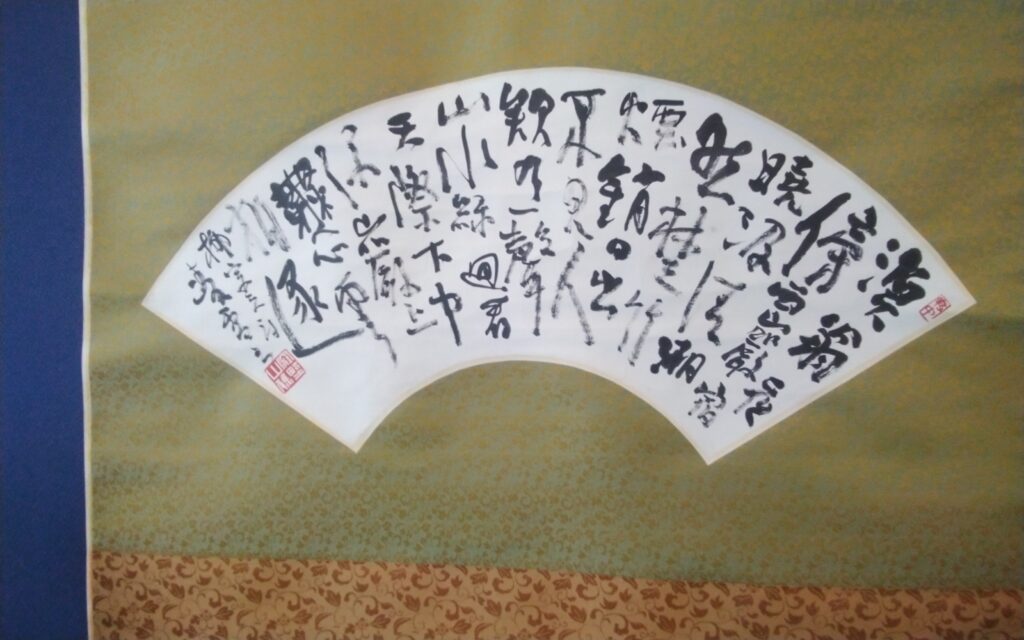 漁翁夜
傍西巖宿
曉汲清湘
然楚竹
煙銷日出
不見人
欸乃一聲
山水綠迴看
天際下中
流巖上
無心雲
相逐
柳宗元詩